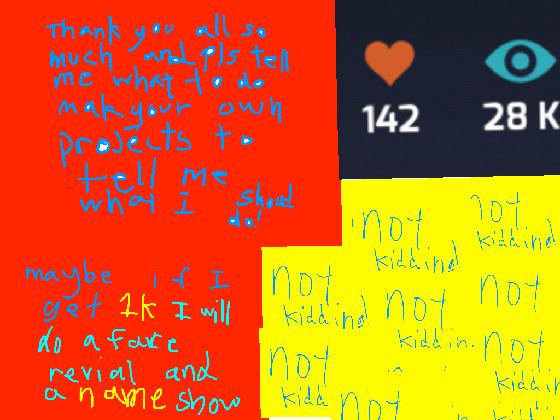 Thank you all so
much and pls tell
me what to do
mak your own
projects to
tell me
what I shoud
do!
maybe if I
get 1k I will
do a face
revial and
a name show
142
28 K
not
kiddind
not
kiddind
not
kiddind
not
kiddin
not
kiddin
not
kidd
not
kiddin
not